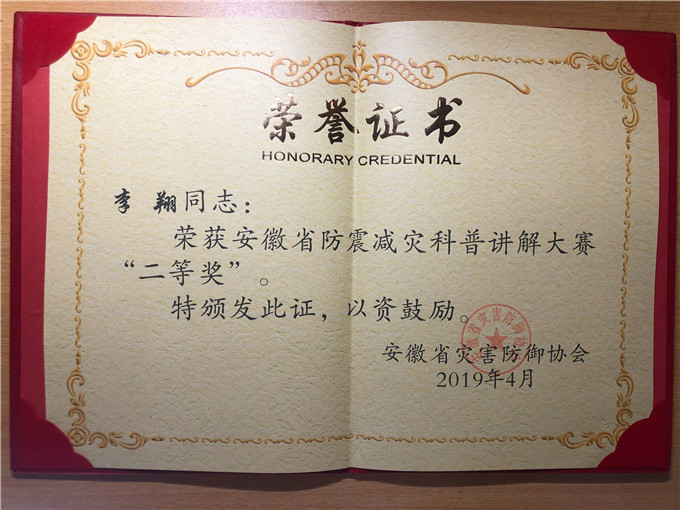 荣誉证书
HONORARY CREDENTIAL
李翔同志：
荣获安徽省防震减灾科普讲解大赛
“二等奖”。
特颁发此证，以资鼓励。
安徽省灾害防御协会
安徽省灾害防御协会
2019年4月